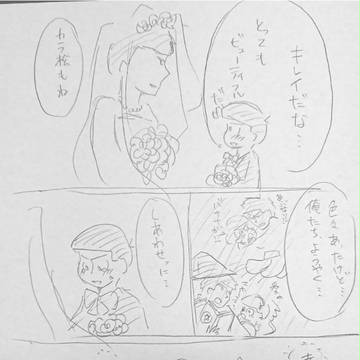 キレイだな…
とっても
ビューティフル
だぜ
カラ松もね
色々あったけど…
俺たち、ようやく…
しあわせに…